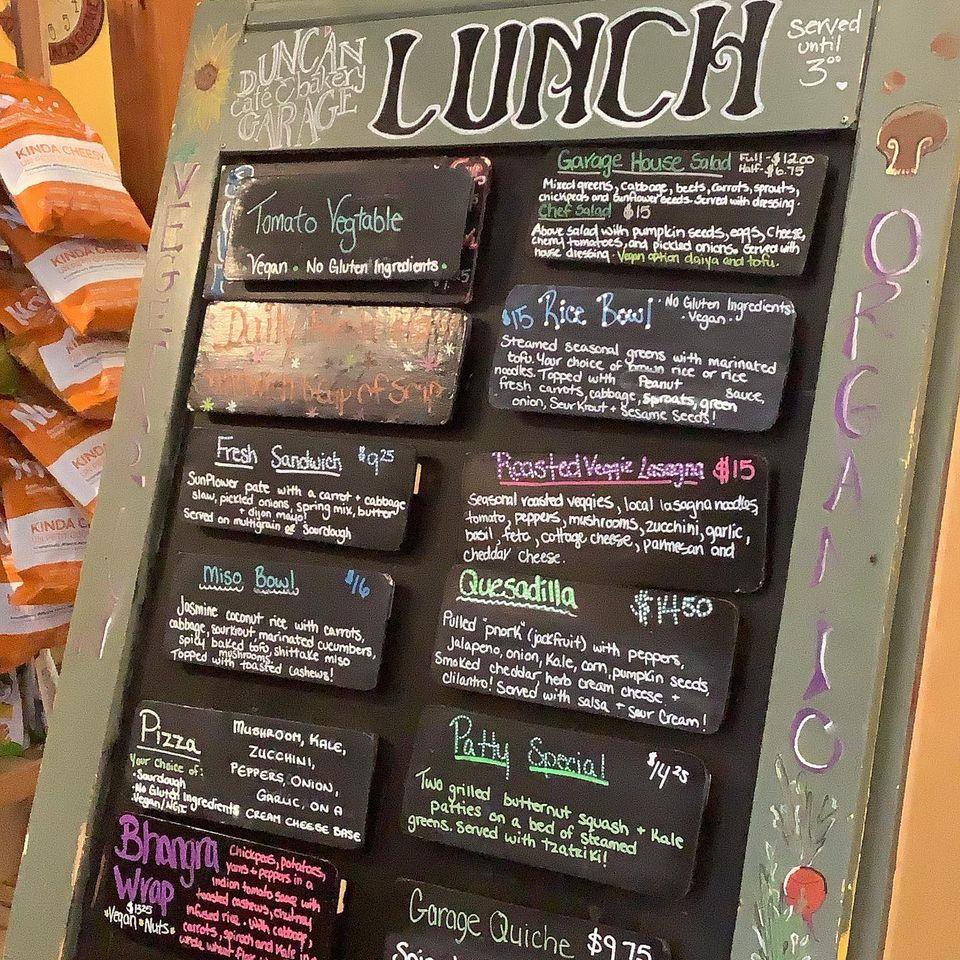 DUNCAN
café & bakery
GARAGE
LUNCH
Served
until
3°°
ORGANIC
KINDA CHEESY
KINDA
KINDA
KINDA
Tomato Vegtable
• Vegan • No Gluten Ingredients •
Daily
Fresh Sandwich $9.25
Sunflower pate with a carrot + cabbage
slaw, pickled onions, spring mix, buttery
+ dijon mayo!
Served on multigrain or Sourdough
Miso Bowl $16
Jasmine coconut rice with carrots,
cabbage, sourkrout, marinated cucumbers,
spicy baked tofu, shittake miso
mushrooms.
Topped with toasted cashews!
Pizza
Your Choice of:
•Sourdough
•No Gluten Ingredients
•Vegan/NGI
MUSHROOM, KALE,
ZUCCHINI,
PEPPERS, ONION,
GARLIC, ON A
CREAM CHEESE BASE
Bhangra
Wrap
$13.25
*Vegan *Nuts*
Chickpeas, potatoes,
yams + peppers in a
indian tomato sauce with
toasted cashews, chutney
infused rice. With cabbage,
carrots, spinach and kale in a
whole wheat
Garage House Salad Full - $12.00
Half - $6.75
Mixed greens, cabbage, beets, carrots, sprouts,
chickpeas and sunflower seeds. Served with dressing.
Chef Salad $15
Above salad with pumpkin seeds, eggs, cheese,
cherry tomatoes, and pickled onions. Served with
house dressing. Vegan option daiya and tofu.
$15 Rice Bowl • No Gluten Ingredients
• Vegan •
Steamed seasonal greens with marinated
tofu. Your choice of brown rice or rice
noodles. Topped with Peanut sauce,
fresh carrots, cabbage, Sprouts, green
onion, Sour Krout + Sesame Seeds!
Roasted Veggie Lasagna $15
Seasonal roasted veggies, local lasagna noodles,
tomato, peppers, mushrooms, zucchini, garlic,
basil, feta, cottage cheese, parmesan and
cheddar cheese.
Quesadilla $14.50
Pulled "pnork" (jackfruit) with peppers,
Jalapeno, onion, Kale, corn, pumpkin seeds,
Smoked cheddar, herb cream cheese +
cilantro! Served with salsa + Sour Cream!
Patty Special $14.25
Two grilled butternut squash + Kale
patties on a bed of steamed
greens. Served with tzatziki!
Garage Quiche $9.75